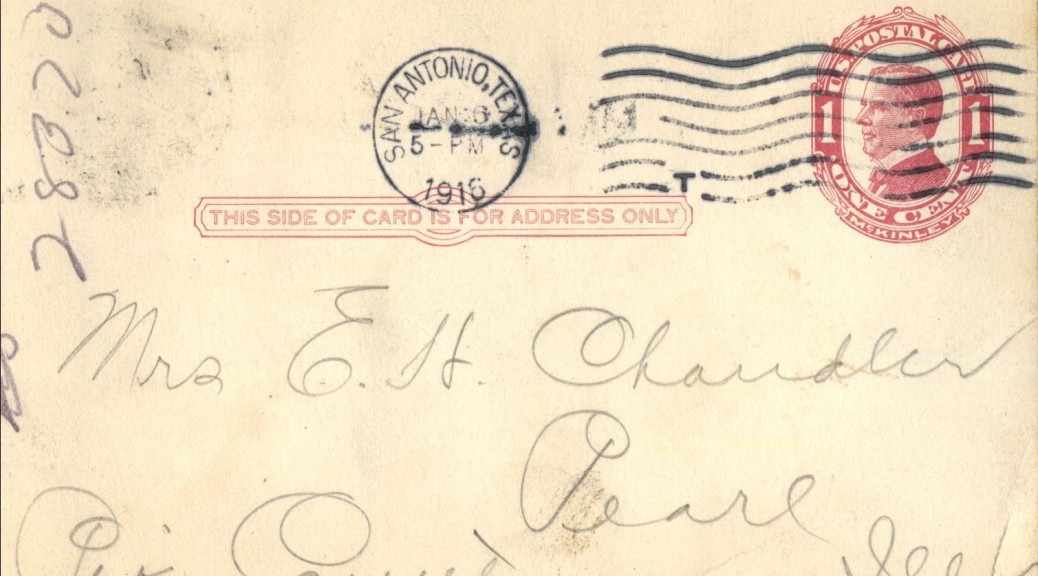 28320
SAN ANTONIO, TEXAS
JAN 6
5-PM
1916
T
U.S. POSTAL CARD
1 1
ONE CENT
McKINLEY
THIS SIDE OF CARD IS FOR ADDRESS ONLY
Mrs E. H. Chandler
Pearl
Ill